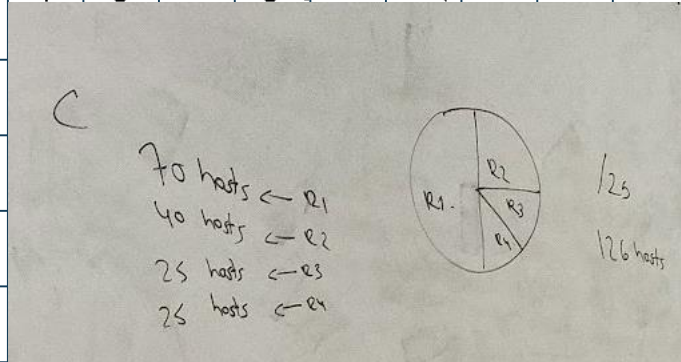 C
70 hosts ← R1
40 hosts ← R2
25 hosts ← R3
25 hosts ← R4
R1.
R2
R3
R4
/25
126 hosts